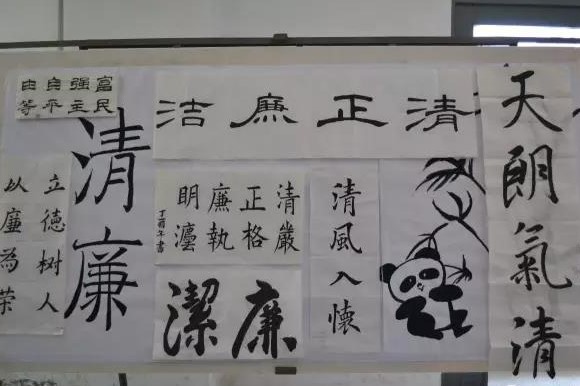 富强自由
民主平等
清廉
立德树人
以廉為荣
清正廉洁
清正廉明
嚴格執灋
丁酉年書
廉潔
清風入懷
天朗氣清